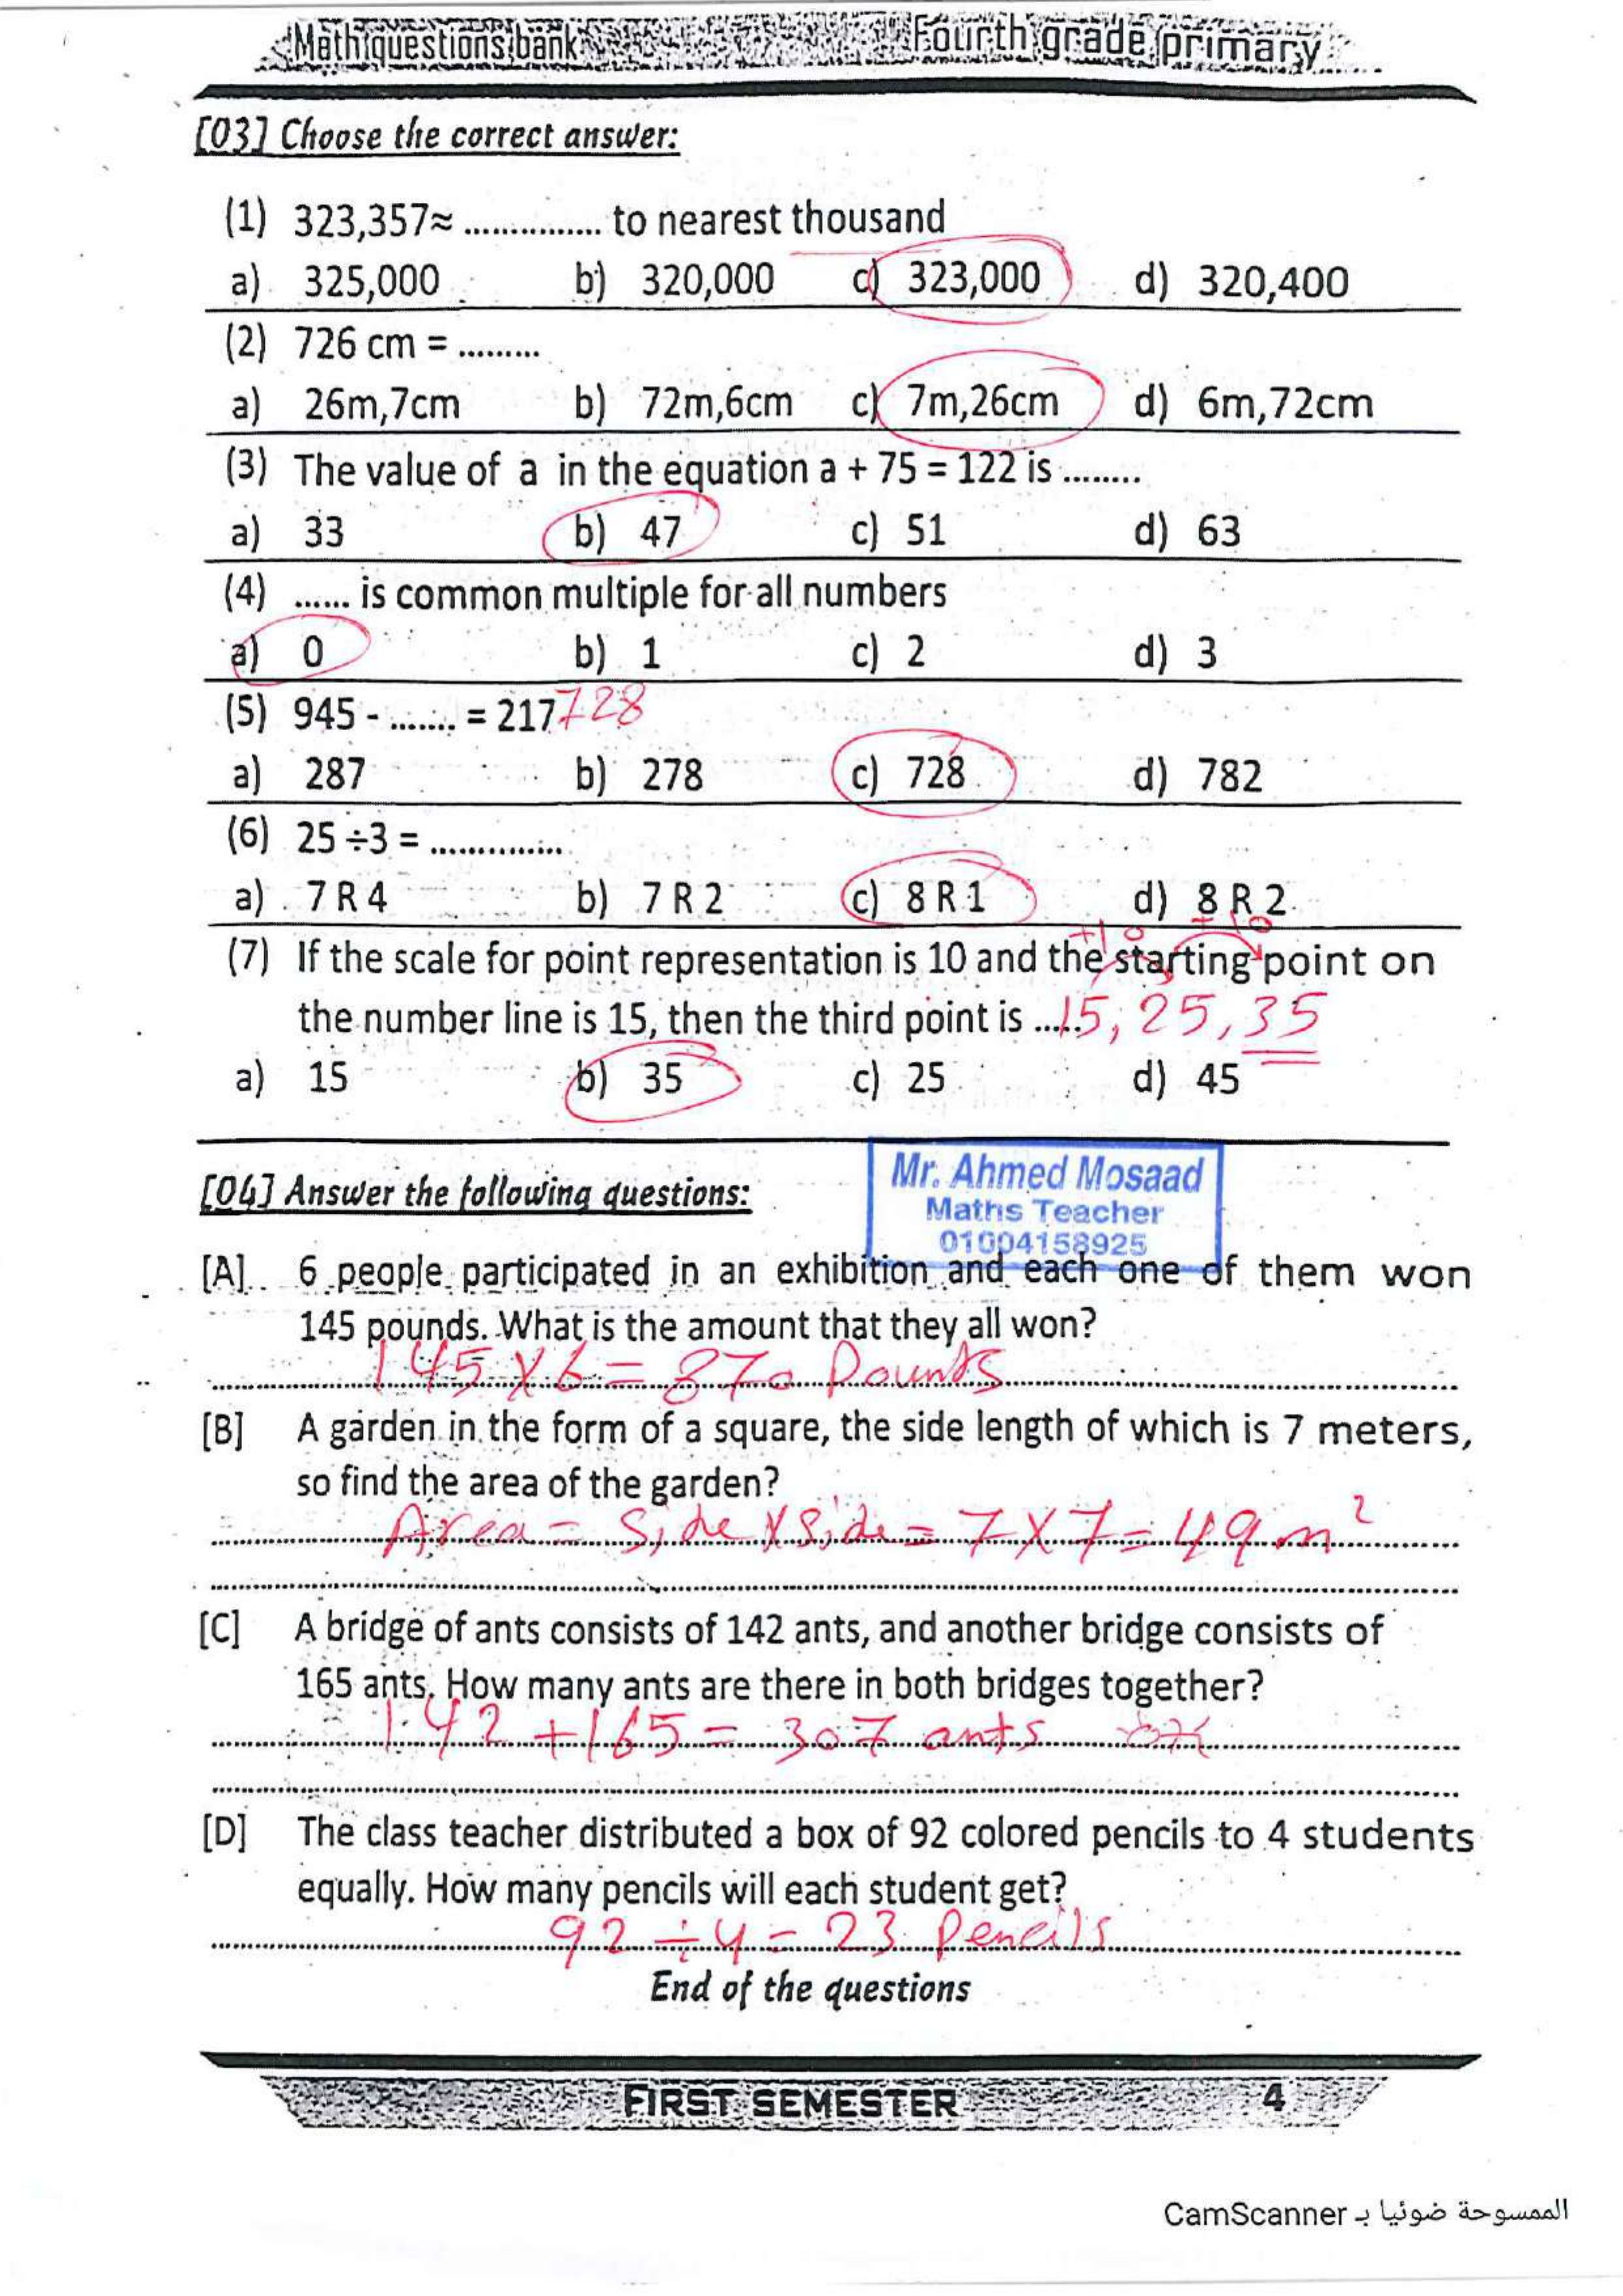 Math questions bank Fourth grade primary
[03] Choose the correct answer:
(1) 323,357≈ ............... to nearest thousand
a) 325,000 b) 320,000 c) 323,000 d) 320,400
(2) 726 cm = .........
a) 26m,7cm b) 72m,6cm c) 7m,26cm d) 6m,72cm
(3) The value of a in the equation a + 75 = 122 is ........
a) 33 b) 47 c) 51 d) 63
(4) ...... is common multiple for all numbers
a) 0 b) 1 c) 2 d) 3
(5) 945 - ....... = 217 728
a) 287 b) 278 c) 728 d) 782
(6) 25 ÷3 = ..............
a) 7 R 4 b) 7 R 2 c) 8 R 1 d) 8 R 2
+10 +10
(7) If the scale for point representation is 10 and the starting point on
the number line is 15, then the third point is ..... 15, 25, 35
a) 15 b) 35 c) 25 d) 45
Mr. Ahmed Mosaad
[04] Answer the following questions:
Maths Teacher
01004158925
[A] 6 people participated in an exhibition and each one of them won
145 pounds. What is the amount that they all won?
145 X 6 = 870 Pounds
[B] A garden in the form of a square, the side length of which is 7 meters,
so find the area of the garden?
Area = Side X Side = 7 X 7 = 49 m²
[C] A bridge of ants consists of 142 ants, and another bridge consists of
165 ants. How many ants are there in both bridges together?
142 + 165 = 307 ants
[D] The class teacher distributed a box of 92 colored pencils to 4 students
equally. How many pencils will each student get?
92 ÷ 4 = 23 Pencils
End of the questions
FIRST SEMESTER 4
الممسوحة ضوئيا بـ CamScanner